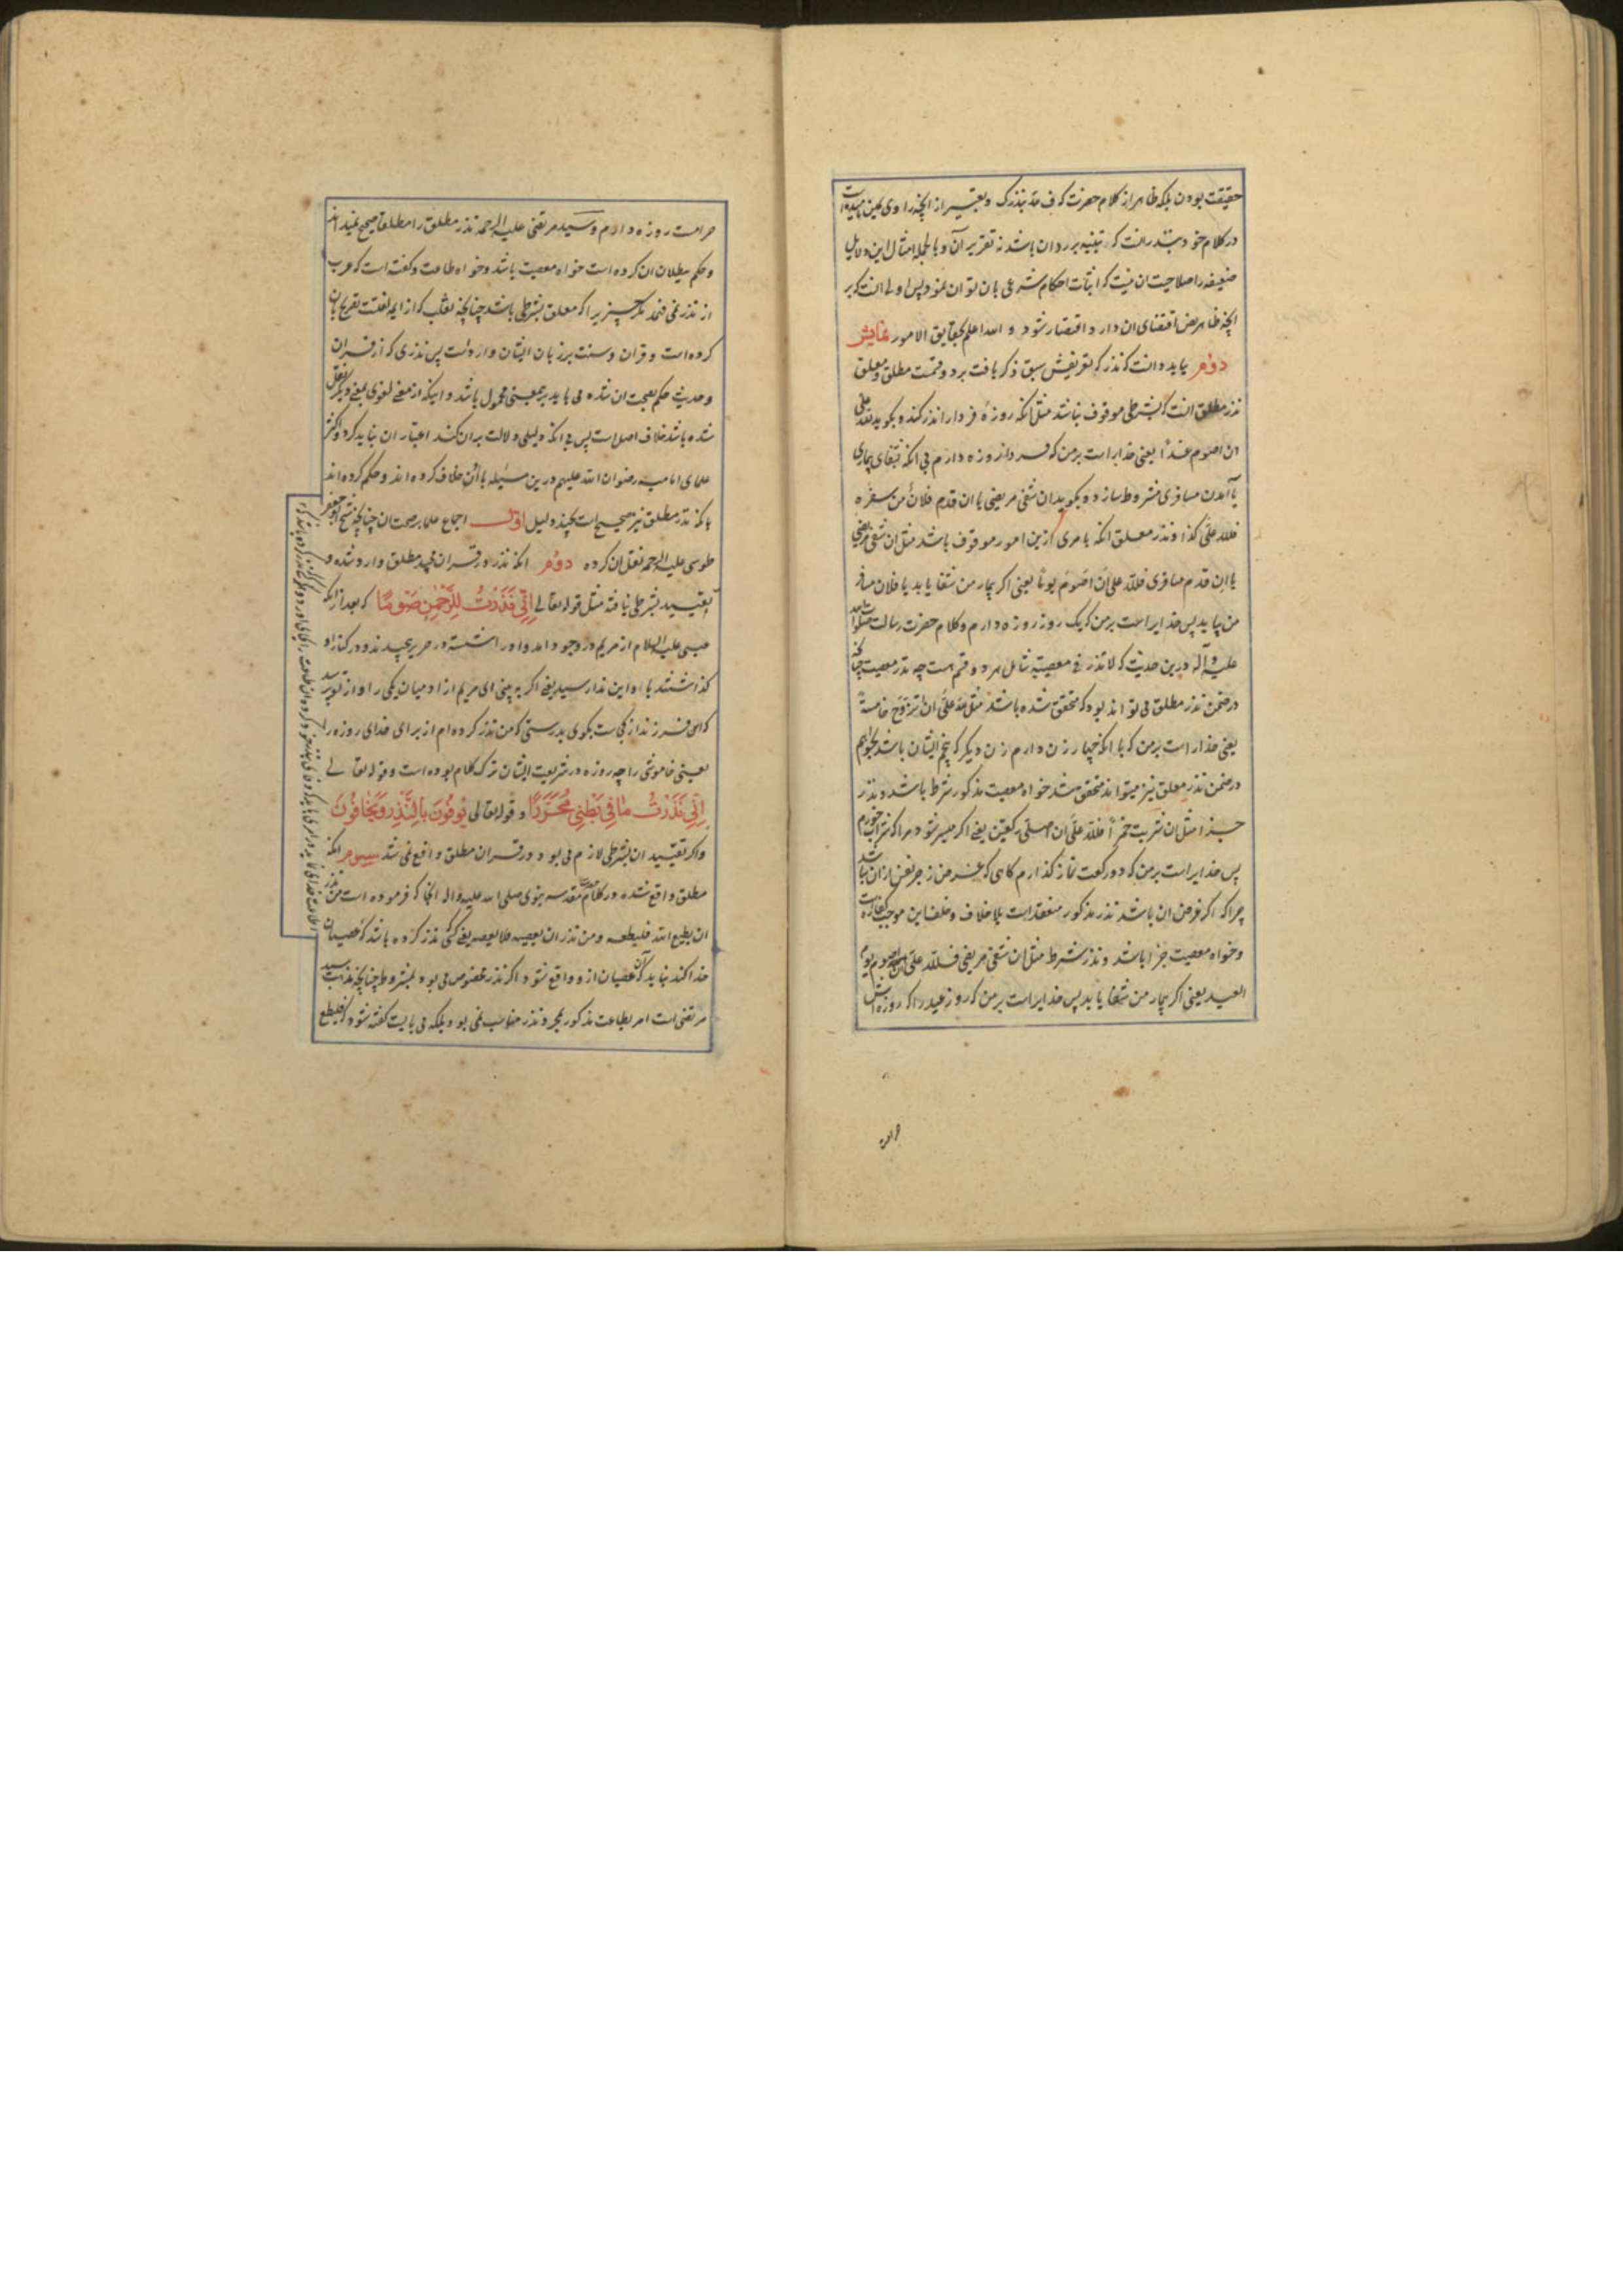 حقیقت بودن بلکه ظاهر از کلام حضرت که ف قد بنذرک و تعبیر از آنچه راوی
در کلام خود بنذر انست که تنبیه بر رد ان باشد نه تقریر آن و بالجمله امثال این دلایل
ضعیفه را صلاحیت ان نیست که اثبات احکام شرعی بان توان نمود پس اولی انست که بر
آنچه ظاهر نص اقتضای ان دارد اقتصار شود و الله اعلم بحقایق الامور نمایش
دوم باید دانست که نذر که تعریفش سبق ذکر یافت بر دو قسمت مطلق و معلق
نذر مطلق انست که بشرطی موقوف نباشد مثل انکه روزهٔ فردا را نذر کند و بگوید لله علی
ان اصوم غداً یعنی خدایراست بر من که فردا روزه دارم بی انکه بشفای بیماری
یا آمدن مسافری مشروط سازد و بگوید ان شفی مریضی یا ان قدم فلان من سفره
فلله علی کذا و نذر معلق انکه بامری ازین امور موقوف باشد مثل ان شفی مریضی
یا ان قدم مسافری فلله علی ان اصوم یوماً یعنی اگر بیمار من شفا یابد یا فلان مسافر
من بیاید پس خدایراست بر من که یک روز روزه دارم و کلام حضرت رسالت صلوات الله
علیه و آله درین حدیث که لا نذر فی معصیة شامل هر دو قسم است چه نذر معصیت چنانکه
در ضمن نذر مطلق می تواند بود که متحقق شده باشد مثل لله علی ان اتزوج خامسة
یعنی خدایراست بر من که با انکه چهار زن دارم زن دیگر که پنجم ایشان باشد بخواهم
در ضمن نذر معلق نیز میتواند متحقق شد خواه معصیت مذکور شرط باشد و نذر
جزا مثل ان شربت خمراً فلله علی ان اصلی رکعتین یعنی اگر میسر شود مرا که شراب خورم
پس خدایراست بر من که دو رکعت نماز گذارم گاهی که غرض زجر نفس از ان نباشد
چرا که اگر غرض ان باشد نذر مذکور منعقد است بلا خلاف و خلف این موجب کفاره است
و خواه معصیت جزا باشد و نذر شرط مثل ان شفی مریضی فلله علی ان اصوم یوم
العید یعنی اگر بیمار من شفا یابد پس خدایراست بر من که روز عید را که روزه اش
حرامست
حرامست روزه دارم و سید مرتضی علیه الرحمه نذر مطلق را مطلقا صحیح نمیداند
و حکم ببطلان ان کرده است خواه معصیت باشد و خواه طاعت و گفته است که عرب
از نذر نمی فهمد مگر چیزیرا که معلق بشرطی باشد چنانچه ثعلب که از ایمه لغتست تصریح بان
کرده است و قران و سنت بر زبان ایشان وارد است پس نذری که از قران
و حدیث حکم بصحت ان شده می باید بر همین معنی محمول باشد و اینکه از معنی لغوی بمعنی دیگر نقل
شده باشد خلاف اصل است پس بی انکه دلیلی دلالت بران کند اعتبار ان نباید کرد و اکثر
علمای امامیه رضوان الله علیهم درین مسئله با ان خلاف کرده اند و حکم کرده اند
بانکه نذر مطلق نیز صحیح است بچند دلیل اول اجماع علما بر صحت ان چنانچه شیخ ابو جعفر
طوسی علیه الرحمه نقل ان کرده دوم انکه نذر در قران مجید مطلق وارد شده و
تقیید بشرطی نیافته مثل قوله تعالی اِنّی نَذَرْتُ لِلرَّحْمنِ صَوْمًا که بعد از انکه
عیسی علیه السلام از مریم در وجود امد و او را شسته در حریر پیچیدند و در کنار او
گذاشتند باو این ندا رسید یعنی اگر به بینی ای مریم از ادمیان یکی را و از تو پرسد
که این فرزند از کجاست بگوی بدرستی که من نذر کرده ام از برای خدای روزه را
یعنی خاموشی را چه روزه در شریعت ایشان ترک کلام بوده است و قوله تعالی
اِنّی نَذَرْتُ مافی بَطْنی مُحَرَّرًا و قوله تعالی یُوفُونَ بِالنَّذْرِ وَ یَخافُونَ
و اگر تقیید ان بشرطی لازم می بود در قران مطلق واقع نمی شد سیوم انکه
مطلق واقع شده در کلام مقدسه نبوی صلی الله علیه و اله انجا که فرموده است من نذر
ان یطیع الله فلیطعه و من نذر ان یعصیه فلا یعصه یعنی کسی که نذر کرده باشد که عصیان
خدا کند نباید که آن عصیان ازو واقع شود اگر نذر مخصوص می بود بمشروط چنانچه مذهب سید
مرتضی است امر بطاعت مذکور بمجرد نذر مناسب نمی بود بلکه می بایست گفته شود که فلیطع